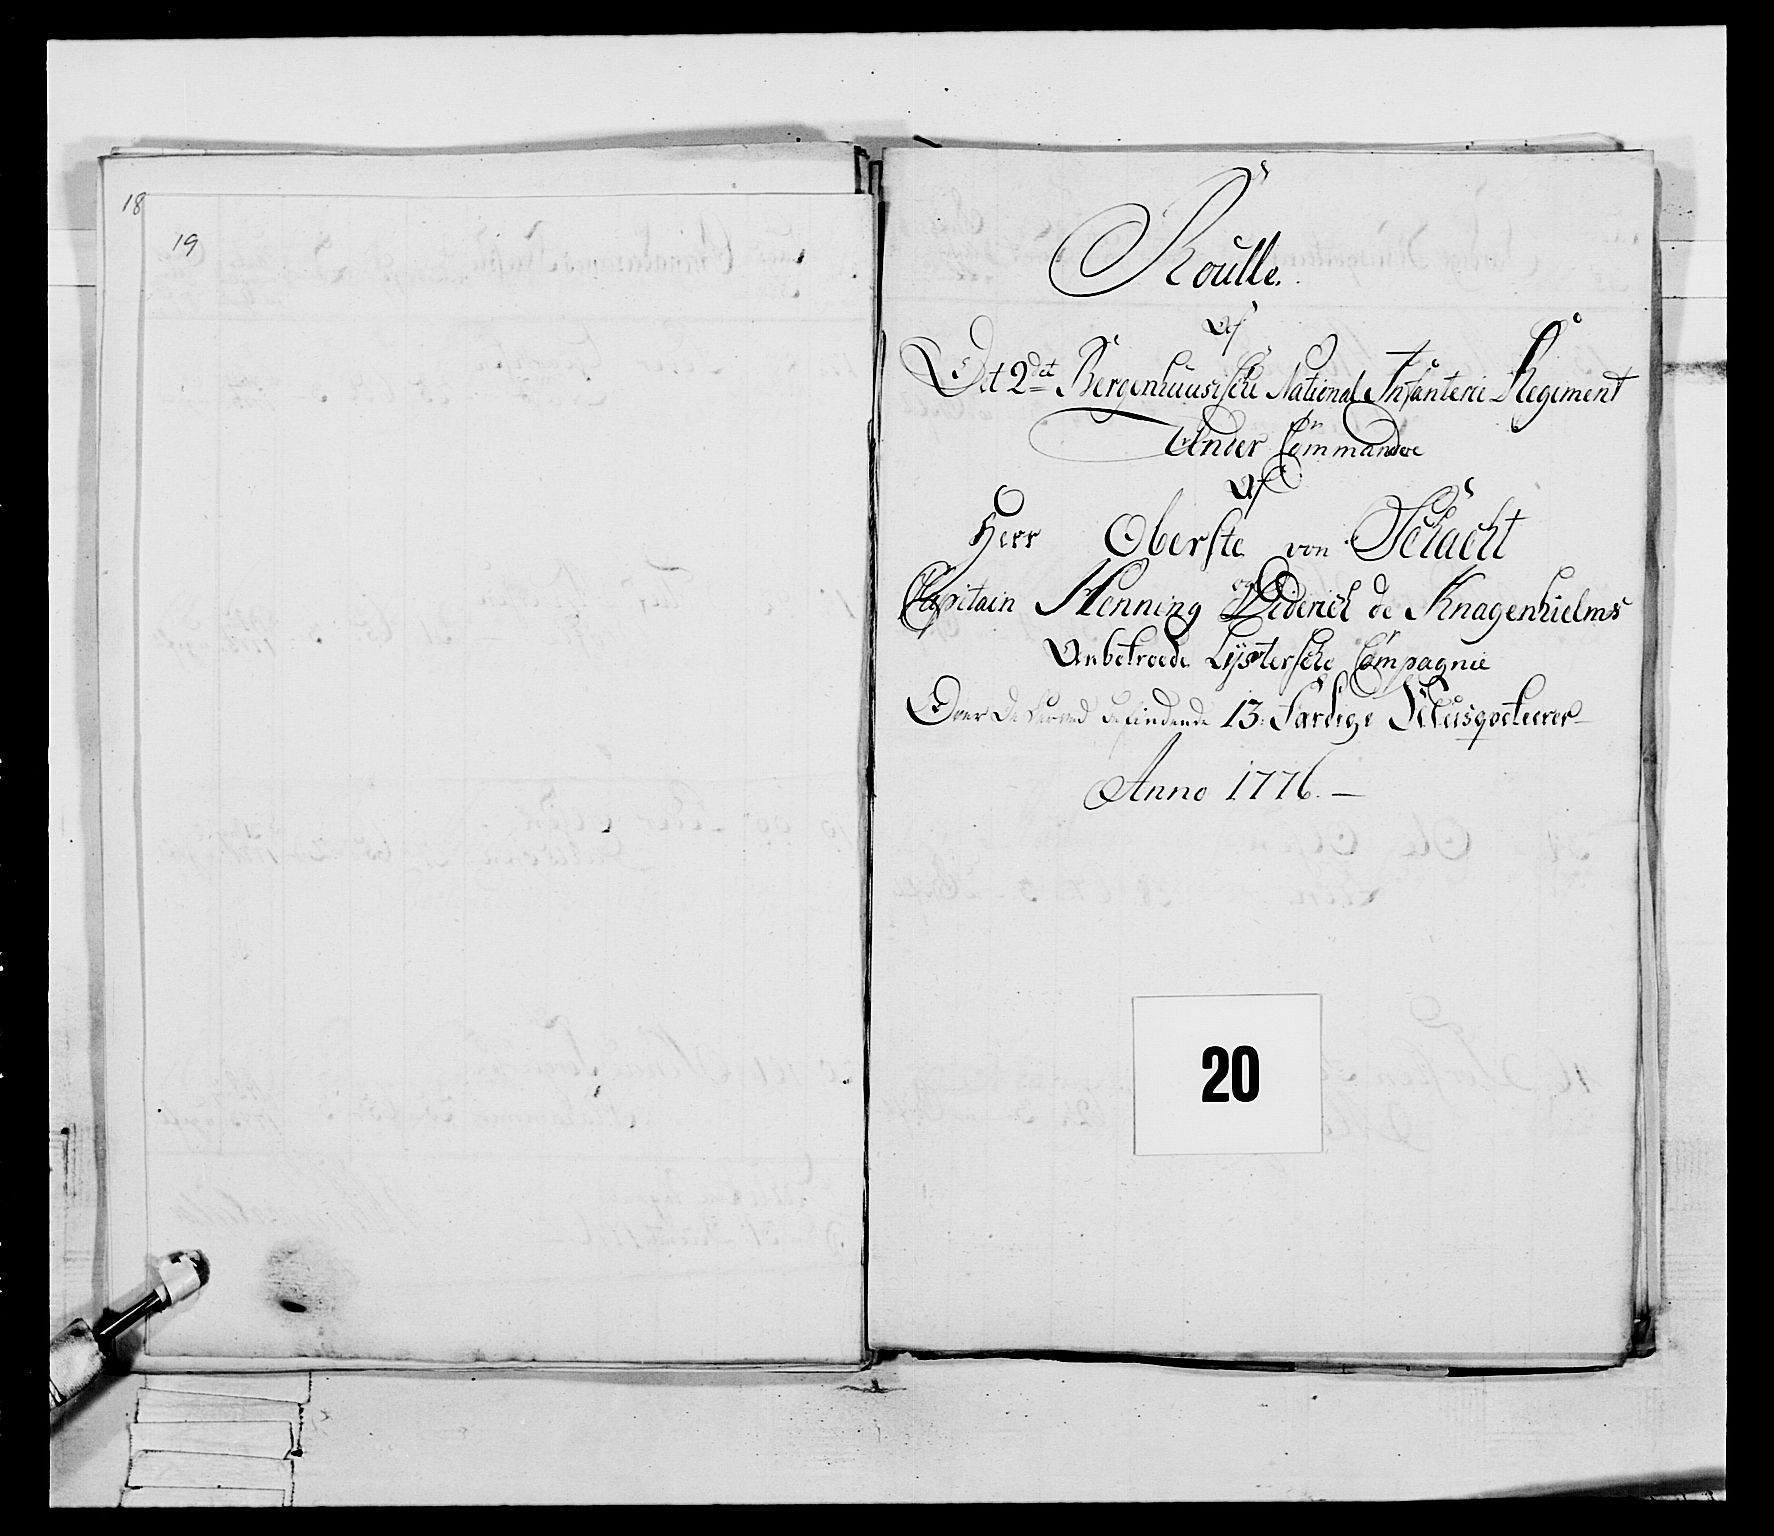 18
19
Roulle.
Af
Det 2det Bergenhuusische National Infanterie Regiment
Under Commando
Af
Herr Oberste von Schacht
og
Capitain Henning Diderich de Knagenhielms
Anbetroede Lystersche Compagnie
Over De herved befindende 13. Færdige Musqveterer
Anno 1776. —
20